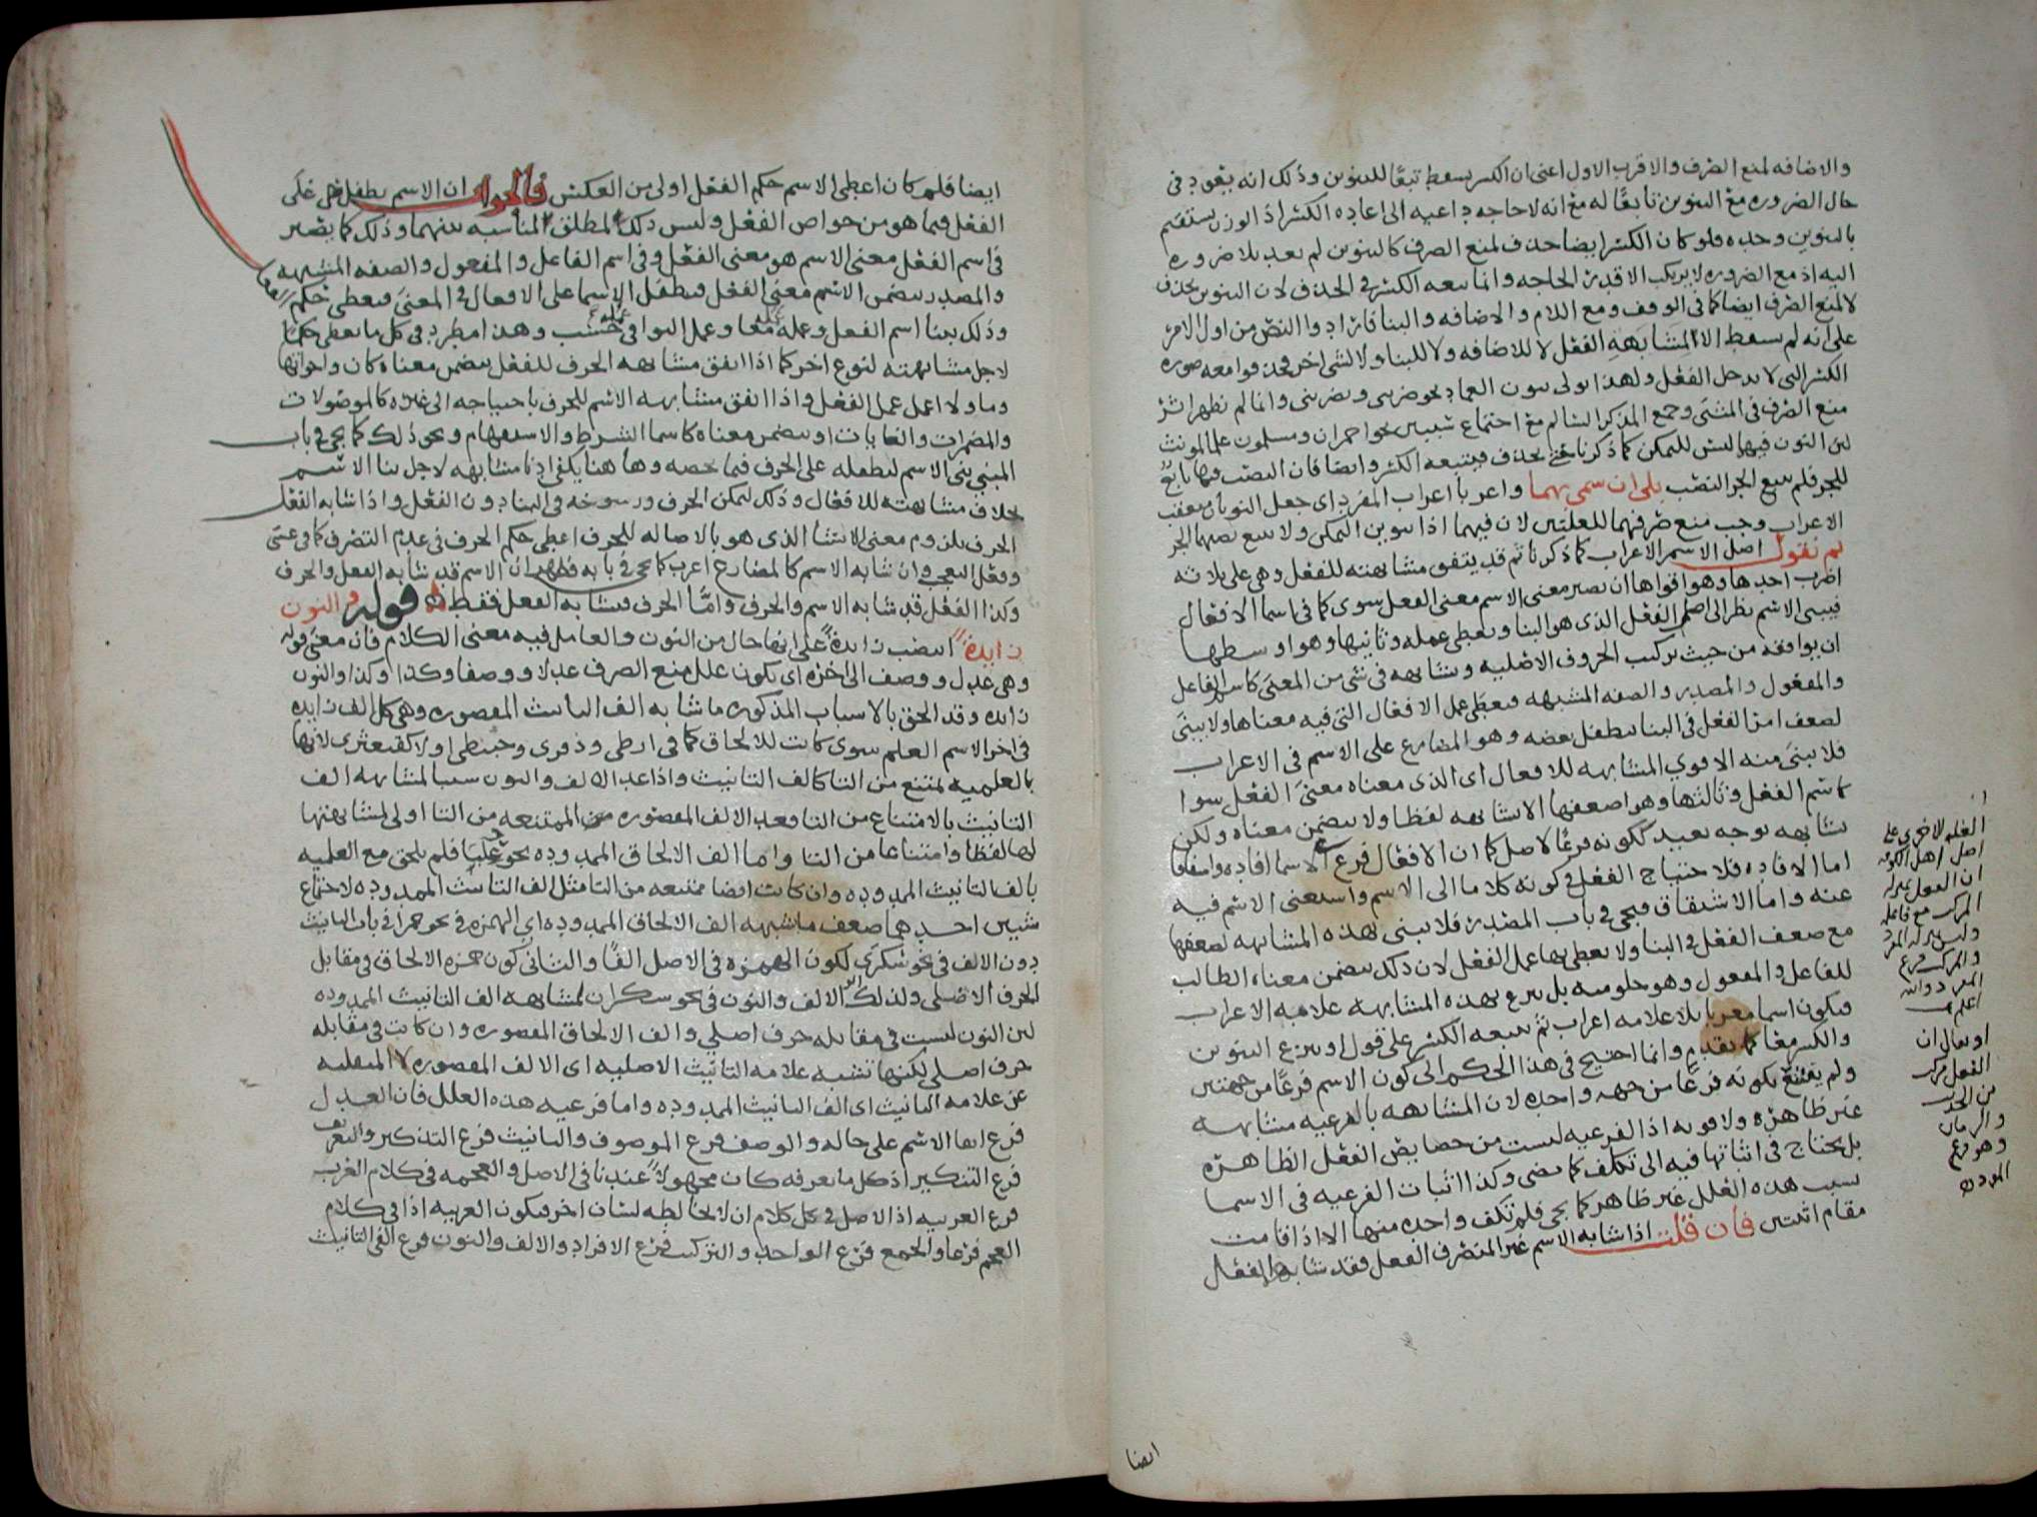 والاضافه لمنع الصرف والاقرب الاول اعنى ان الكسر يسقط تبعًا للتنوين وذلك انه يعود فى
حال الضروره مع التنوين تابعًا له مع انه لا حاجه داعيه الى اعاده الكسر اذ الوزن يستقيم
بالتنوين وحده فلو كان الكسر ايضا حذف لمنع الصرف كالتنوين لم يعد بلا ضروره
اليه اذ مع الضروره لا يرتكب الا قدر الحاجه وانما تبعه الكسر فى الحذف لان التنوين يحذف
لا لمنع الصرف ايضا كما فى الوقف ومع اللام والاضافه والبنا فارادوا النص من اول الامر
على انه لم يسقط الا لمشابهه الفعل لا للاضافه ولا للبنا ولا لشى اخر فحذفوا معه صوره
الكسر التى لا تدخل الفعل ولهذا تولى بنون العماد نحو ضربنى ويضربنى وانما لم يظهر اثر
منع الصرف فى المثنى وجمع المذكر السالم مع اجتماع سببين نحو احمران ومسلمون علما لمونث
لان النون فيهما ليس للتمكن كما ذكرنا حتى يحذف فيتبعه الكسر وايضا فان النصب فيها تابع
للجر فلم يتبع الجر النصب بلى ان سمى بهما واعربا اعراب المفرد اى جعل النون معتقب
الاعراب وجب منع صرفهما للعلتين لان فيهما اذا تنوين التمكن ولا يتبع نصبهما الجر
ثم نقول اصل الاسم الاعراب كما ذكرنا ثم قد يتفق مشابهته للفعل وهى على ثلاثه
اضرب احدها وهو اقواها ان يصير معنى الاسم معنى الفعل سوى كما فى اسما الافعال
فيبنى الاسم نظرا الى اصل الفعل الذى هو البنا ويعطى عمله وثانيها وهو اوسطها
ان يوافقه من حيث تركيب الحروف الاصليه ويشابهه فى شى من المعنى كاسم الفاعل
والمفعول والمصدر والصفه المشبهه فيعطى عمل الافعال التى فيه معناها ولا يبنى
لضعف امر الفعل فى البنا بتطفل بعضه وهو المضارع على الاسم فى الاعراب
فلا يبنى منه الا قوى المشابهه للافعال اى الذى معناه معنى الفعل سوا
كاسم الفعل وثالثها وهو اضعفها الا يشابهه لفظا ولا يتضمن معناه ولكن
يشابهه بوجه بعيد ككونه فرعًا لاصل كما ان الافعال فرع الاسما افاده واشتقاقا
اما الافاده فلاحتياج الفعل فى كونه كلاما الى الاسم واستغنى الاسم فيه
عنه واما الاشتقاق فيجى فى باب المصدر فلا يبنى بهذه المشابهه لضعفها
مع ضعف الفعل فى البنا ولا يعطى بها عمل الفعل لان ذلك بتضمن معناه الطالب
للفاعل والمفعول وهو خلو منه بل ينزع بهذه المشابهه علامه الاعراب
فيكون اسما معربا بلا علامه اعراب ثم يتبعه الكسر على قول او ينزع التنوين
والكسر معا كما تقدم وانما احتيج فى هذا الحكم الى كون الاسم فرعًا من جهتين
ولم يقنع بكونه فرعًا من جهه واحده لان المشابهه بالفرعيه مشابهه
غير ظاهره ولا قويه اذ الفرعيه ليست من خصايص الفعل الظاهره
بل يحتاج فى اثباتها فيه الى تكلف كما مضى وكذا اثبات الفرعيه فى الاسما
بسبب هذه العلل غير ظاهر كما يجى فلم تكف واحده منها الا اذا قامت
مقام اثنتين فان قلت اذا شابه الاسم غير المنصرف الفعل فقد شابهه الفعل
اصل اهل الكوفه
ان الفعل بمنزله
المركب مع فاعله
والمركب فرع
المفرد والله
اعلم
او يقال ان
الفعل مركب
من الحدث
والزمان
وهو فرع
المفرد
ايضا
ايضا فلم كان اعطى الاسم حكم الفعل اولى من العكس فالجواب ان الاسم تطفل على
الفعل فيما هو من خواص الفعل وليس ذلك لمطلق المناسبه بينهما وذلك كما يصير
فى اسم الفعل معنى الاسم هو معنى الفعل وفى اسم الفاعل والمفعول والصفه المشبهه
والمصدر يتضمن الاسم معنى الفعل فتطفل الاسما على الافعال فى المعنى فيعطى حكم الفعل
وذلك ببنا اسم الفعل وعمله معا وعمل البواقى عمله فحسب وهذا مطرد فى كل ما يعطى حكمًا
لاجل مشابهته لنوع اخر كما اذا اتفق مشابهه الحرف للفعل بتضمن معناه كان واخواتها
وما ولا اعمل عمل الفعل واذا اتفق مشابهه الاسم للحرف باحتياجه الى غيره كالموصولات
والمضمرات والغايات او بتضمن معناه كاسما الشرط والاستفهام ونحو ذلك كما يجى فى باب
المبنى بنى الاسم لتطفله على الحرف فيما يخصه وها هنا يكفى ادنا مشابهه لاجل بنا الاسم
بخلاف مشابهته للافعال وذلك لتمكن الحرف ورسوخه فى البنا دون الفعل واذا شابه الفعل
الحرف بلزوم معنى الانشا الذى هو بالاصاله للحرف اعطى حكم الحرف فى عدم التصرف كما فى عسى
وفعل التعجب وان شابه الاسم كالمضارع اعرب كما يجى فى بابه فظهر ان الاسم قد شابه الفعل والحرف
وكذا الفعل قد شابه الاسم والحرف وامّا الحرف فيشابه الفعل فقط قوله والنون
زايدةً انتصب زايدةً على انها حال من النون والعامل فيه معنى الكلام فان معنى قوله
وهى عدل ووصف الى اخره اى يكون علل منع الصرف عدلا ووصفا وكذا وكذا والنون
زايده وقد الحق بالاسباب المذكوره ما شابه الف التانيث المقصوره وهى كل الف زايده
فى اخر الاسم العلم سوى كانت للالحاق كما فى ارطى وذفرى وحبنطى او لا كقبعثرى لانها
بالعلميه تمتنع من التا كالف التانيث واذا عد الالف والنون سببا لمشابهه الف
التانيث بالامتناع من التا فعد الالف المقصوره الممتنعه من التا اولى لمشابهتها
لها لفظا وامتناعا من التا واما الف الالحاق الممدوده نحو علبا فلم يلحق مع العلميه
بالف التانيث الممدوده وان كانت ايضا ممتنعه من التا مثل الف التانيث الممدوده لاجتماع
شيين احدهما ضعف ما شبهه الف الالحاق الممدوده اى الهمزه فى نحو حمرا فى باب التانيث
دون الالف فى نحو سكرى لكون الهمزه فى الاصل الفًا والثانى كون همزه الالحاق فى مقابل
الحرف الاصلى ولذلك اثر الالف والنون فى نحو سكران لمشابهه الف التانيث الممدوده
لان النون ليست فى مقابله حرف اصلى والف الالحاق المقصوره وان كانت فى مقابله
حرف اصلى لكنها تشبه علامه التانيث الاصليه اى الالف المقصوره لا المنقلبه
عن علامه التانيث اى الف التانيث الممدوده واما فرعيه هذه العلل فان العدل
فرع ابقا الاسم على حاله والوصف فرع الموصوف والتانيث فرع التذكير والتعريف
فرع التنكير اذ كل ما نعرفه كان مجهولاً عندنا فى الاصل والعجمه فى كلام العرب
فرع العربيه اذ الاصل فى كل كلام ان لا يخالطه لسان اخر فيكون العربيه اذا فى كلام
العجم فرعا والجمع فرع الواحد والتركيب فرع الافراد والالف والنون فرع الفى التانيث